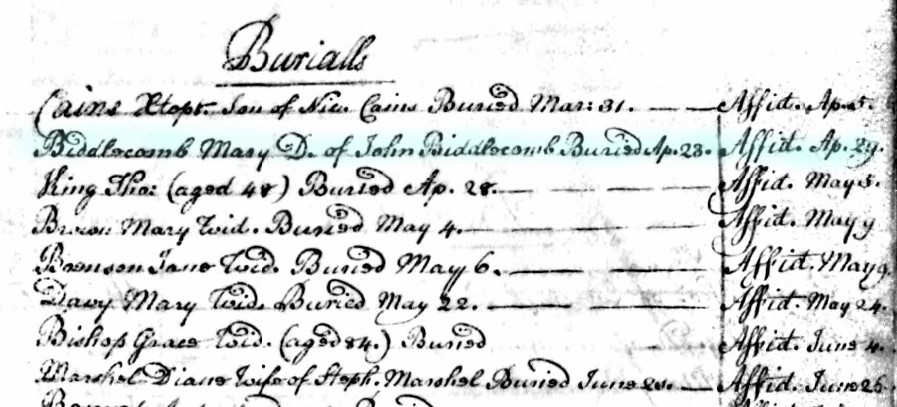 Burialls
Cains Xtopr. Son of Nic. Cains Buried Mar: 31. Affid. Ap. 5.
Biddlecomb Mary D. of John Biddlecomb Buried Ap. 23. Affid. Ap. 29.
King Tho: (aged 48) Buried Ap. 28. Affid. May 5.
Brown Mary Wid. Buried May 4. Affid. May 9
Brenson Jane Wid. Buried May 6. Affid. May 9.
Davy Mary Wid. Buried May 22. Affid. May 24.
Bishop Grace Wid. (aged 84.) Buried Affid. June 4.
Marshel Diane Wife of Steph. Marshel Buried June 21. Affid. June 26.